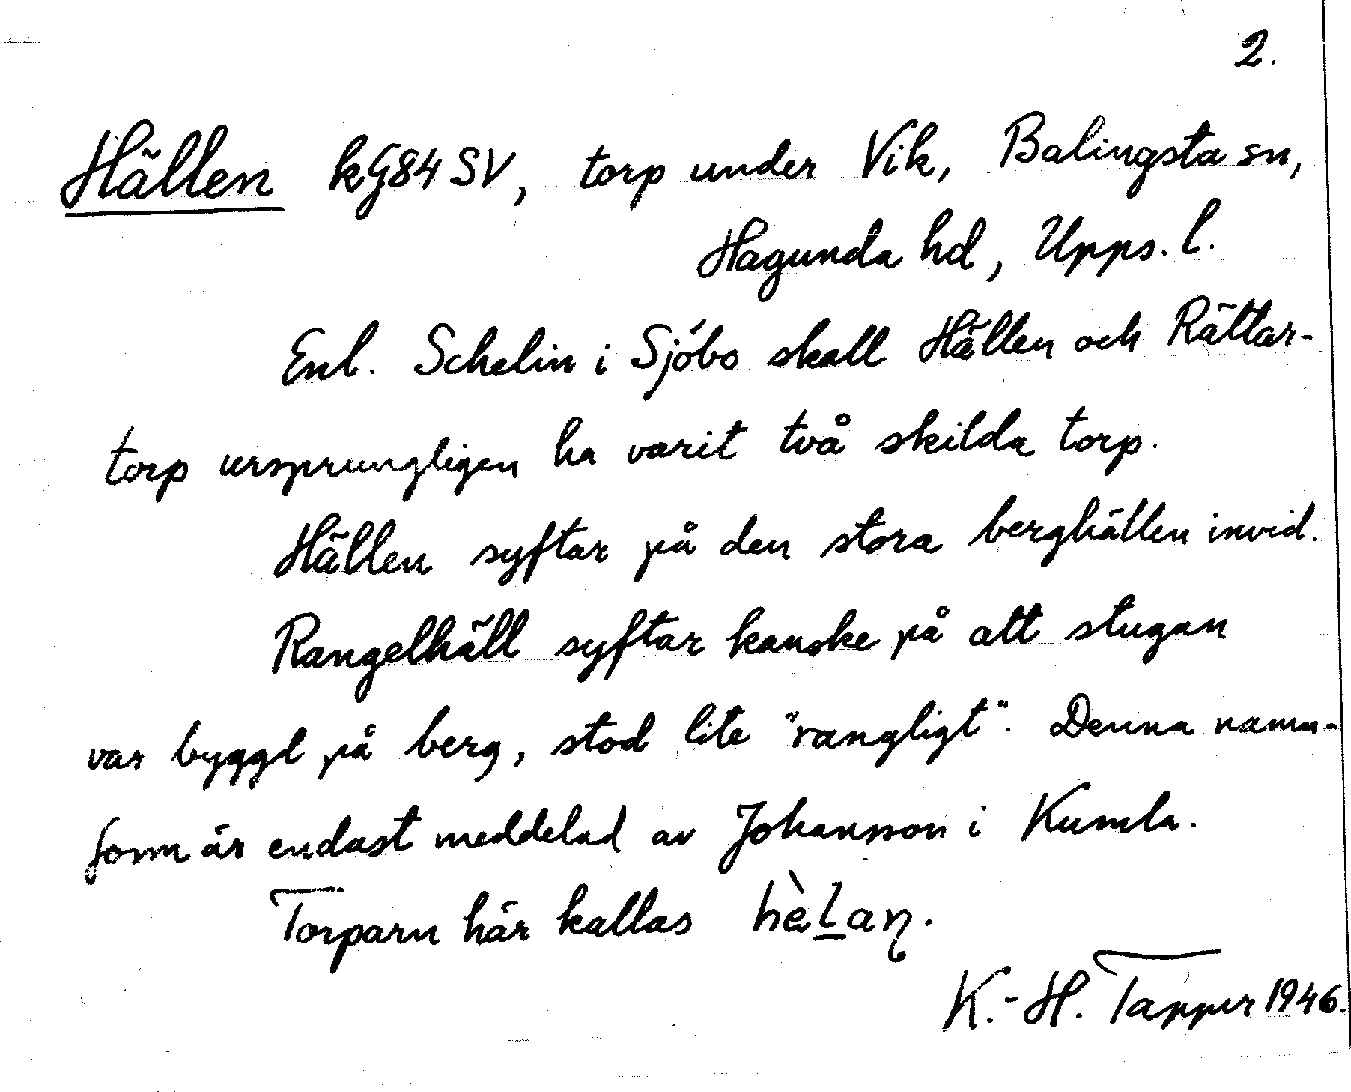 2.
Hällen kG84SV, torp under Vik, Balingsta sn,
Hagunda hd, Upps. l.
Enl. Schelin i Sjöbo skall Hällen och Rättar-
torp ursprungligen ha varit två skilda torp.
Hällen syftar på den stora berghällen invid.
Rangelhäll syftar kanske på att stugan
var byggd på berg, stod lite "rangligt". Denna namn-
form är endast meddelad av Johansson i Kumla.
Torparn här kallas
K.-H. Tapper 1946.